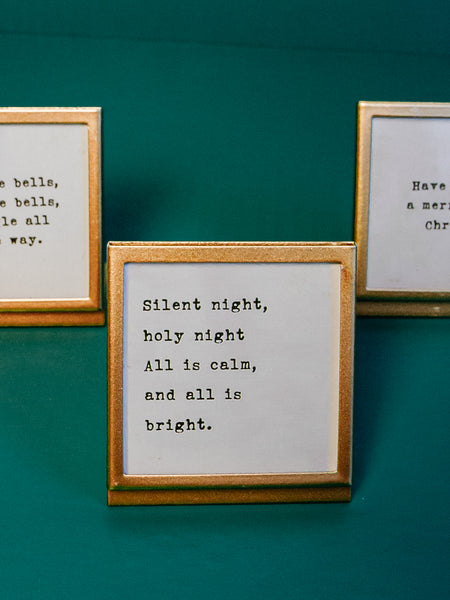 e bells,
e bells,
le all
way.
Silent night,
holy night
All is calm,
and all is
bright.
Have
a mer
Chr